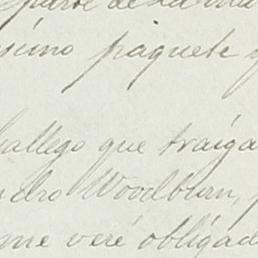 parte de la
simo paquete
Gallego que traiga
ndro Woodbian,
me veré obligad